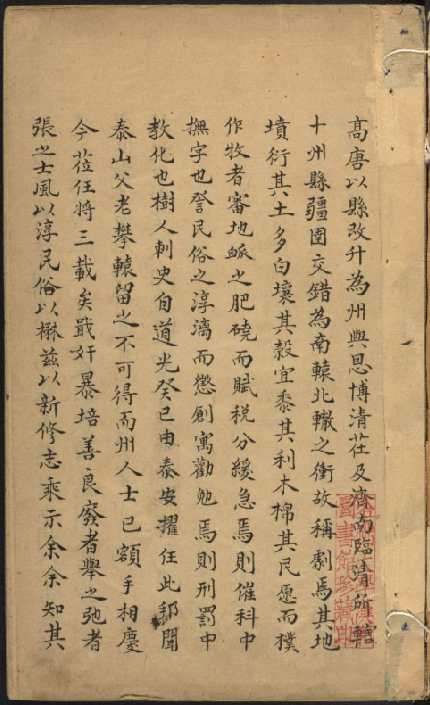 高唐以縣改升為州與恩博清茌及濟南臨清所轄
十州縣疆圉交錯為南轅北轍之衝故稱劇焉其地
墳衍其土多白壤其穀宜黍其利木棉其民愿而樸
作牧者審地脈之肥磽而賦稅分緩急焉則催科中
撫字也詧民俗之淳漓而懲創寓勸勉焉則刑罰中
教化也樹人刺史自道光癸巳由泰安擢任此邦聞
泰山父老攀轅留之不可得而州人士已額手相慶
今蒞任將三載矣戢奸暴培善良廢者舉之弛者
張之士風以淳民俗以楙茲以新修志乘示余余知其